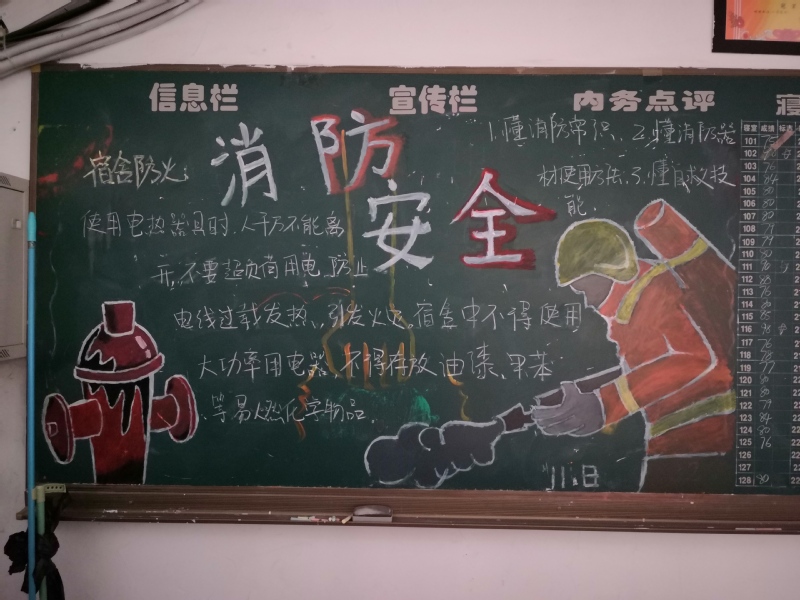 信息栏
宣传栏
内务点评
寝
消防
安全
宿舍防火:
使用电热器具时,人千万不能离
开,不要超负荷用电,防止
电线过载发热、引发火灾。宿舍中不得使用
大功率用电器,不得存放油漆、果苯
等易燃化学物品。
1.懂消防常识、2.懂消防器
材使用方法、3.懂自救技
能.
11.日
寝室 成绩
101
102
103
104
105
106
107
108
109
110
111
112
113
114
115
116
117
118
119
120
121
122
123
124
125
126
127
128